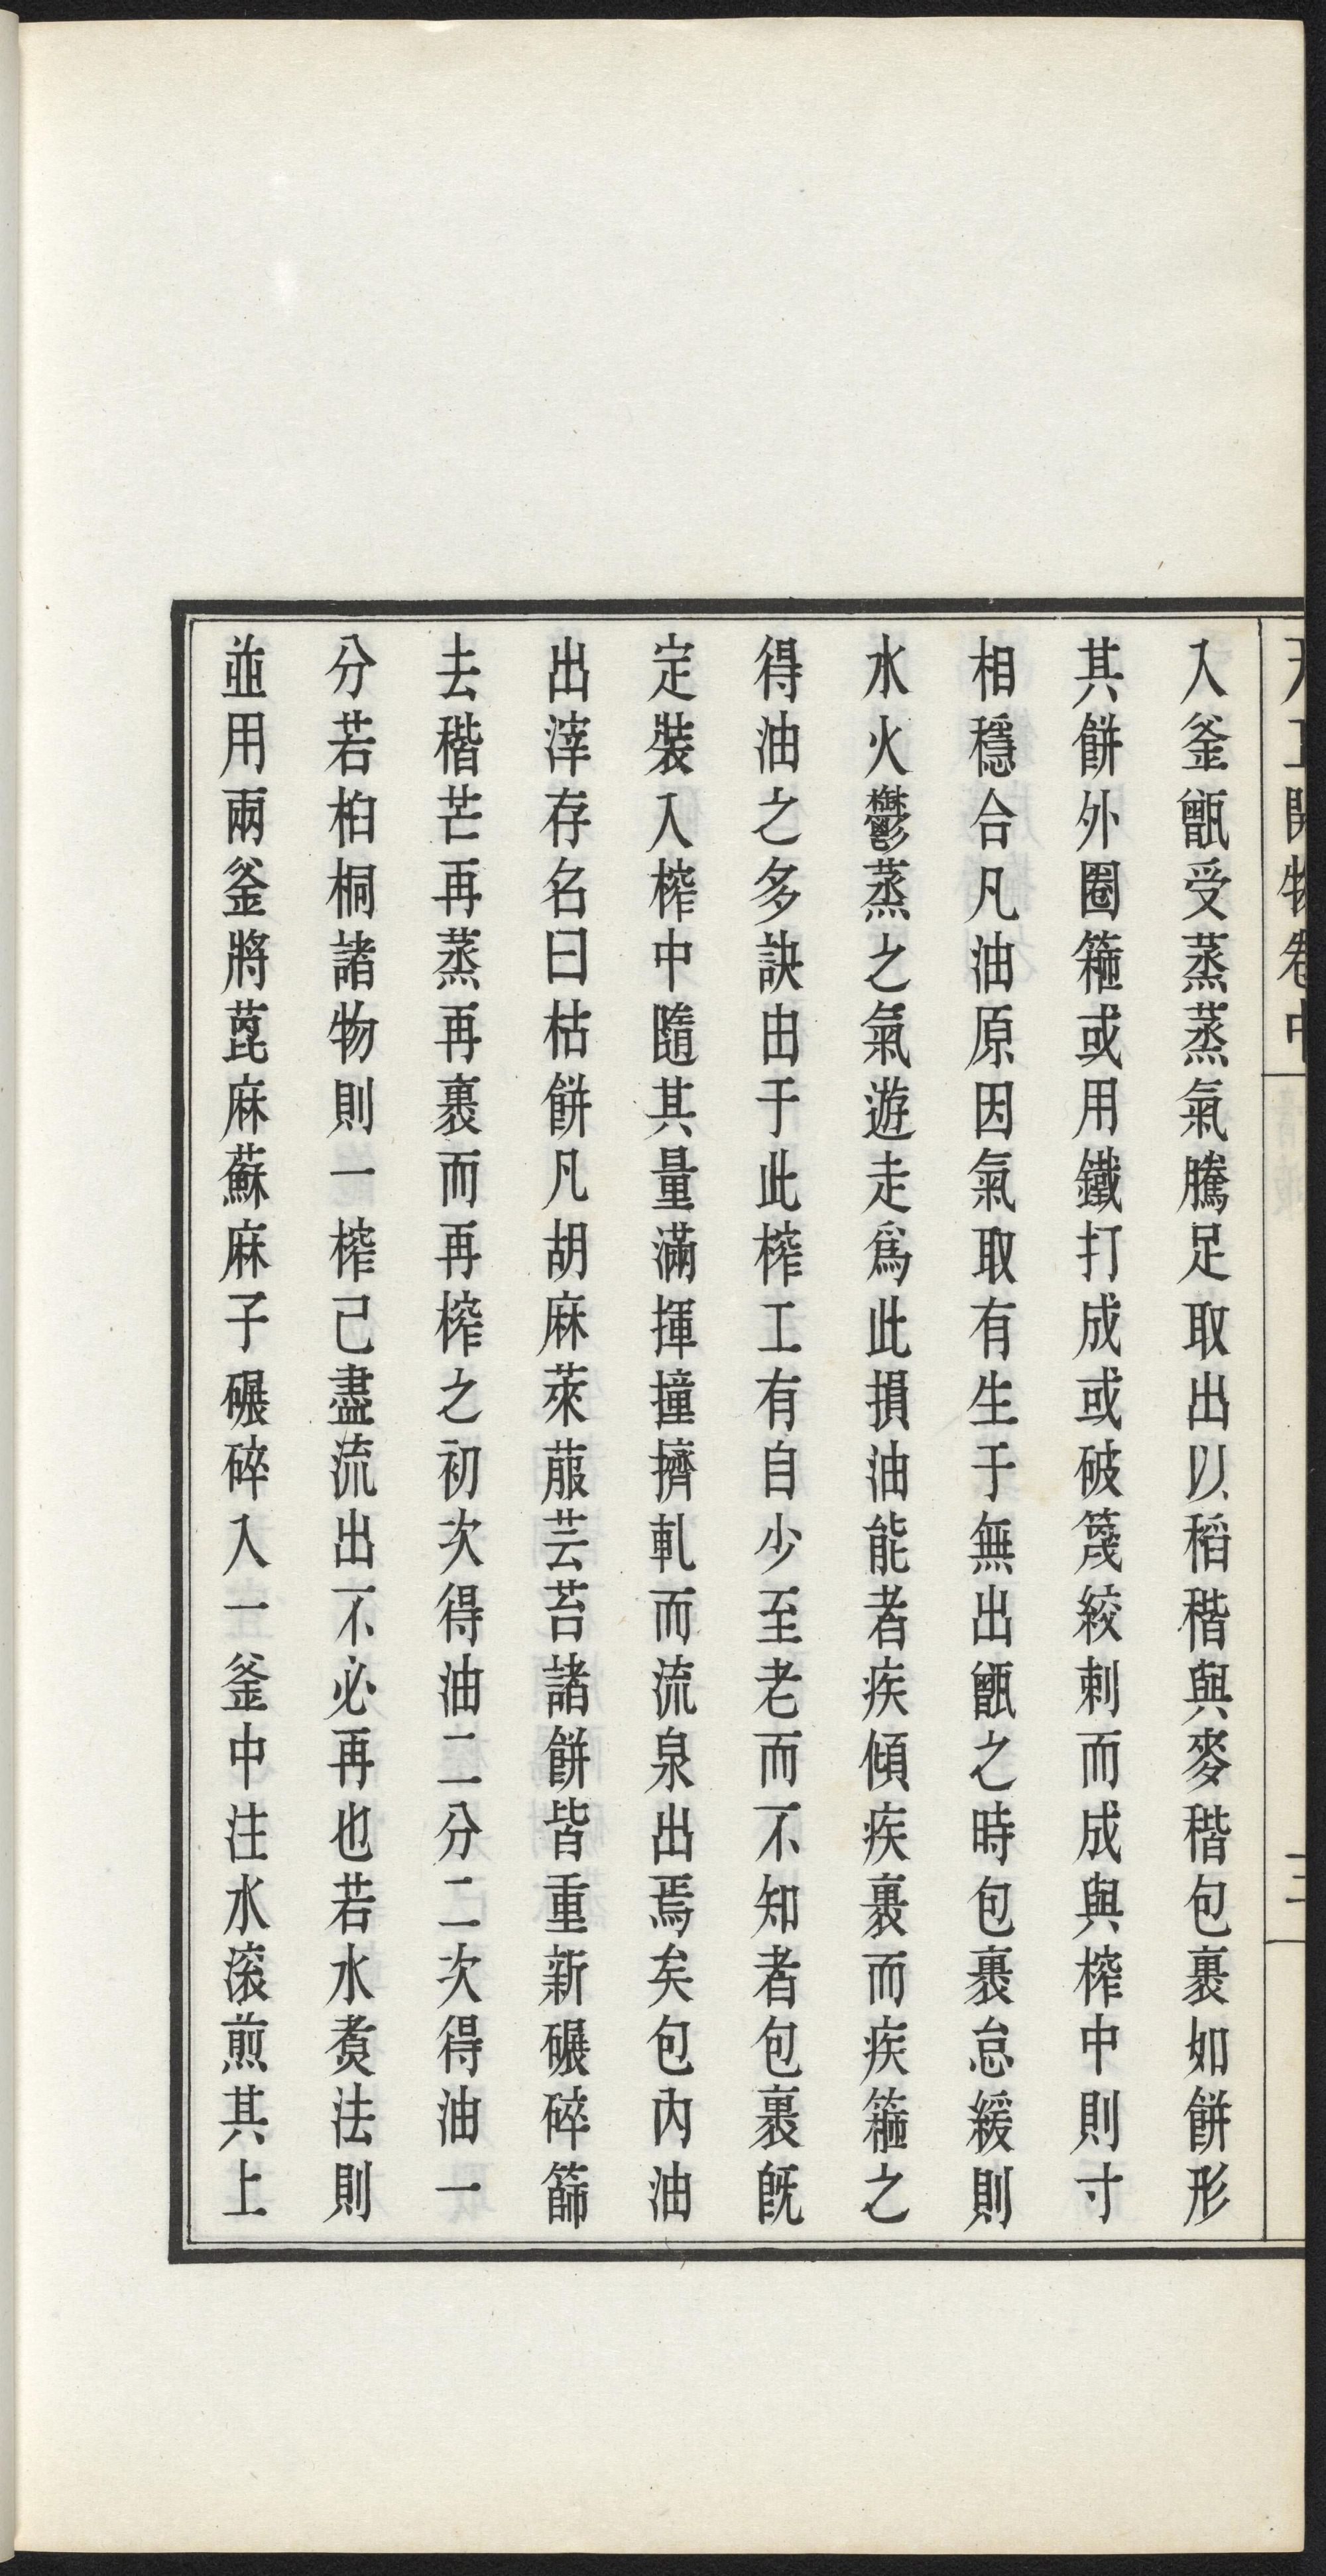 天工開物卷中 三
入釜甑受蒸蒸氣騰足取出以稻稭與麥稭包裹如餅形
其餅外圈箍或用鐵打成或破篾絞刺而成與榨中則寸
相穩合凡油原因氣取有生于無出甑之時包裹怠緩則
水火鬱蒸之氣遊走爲此損油能者疾傾疾裹而疾箍之
得油之多訣由于此榨工有自少至老而不知者包裹旣
定裝入榨中隨其量滿揮撞擠軋而流泉出焉矣包內油
出滓存名曰枯餅凡胡麻萊菔芸苔諸餅皆重新碾碎篩
去稭芒再蒸再裹而再榨之初次得油二分二次得油一
分若桕桐諸物則一榨已盡流出不必再也若水煑法則
並用兩釜將蓖麻蘇麻子碾碎入一釜中注水滾煎其上